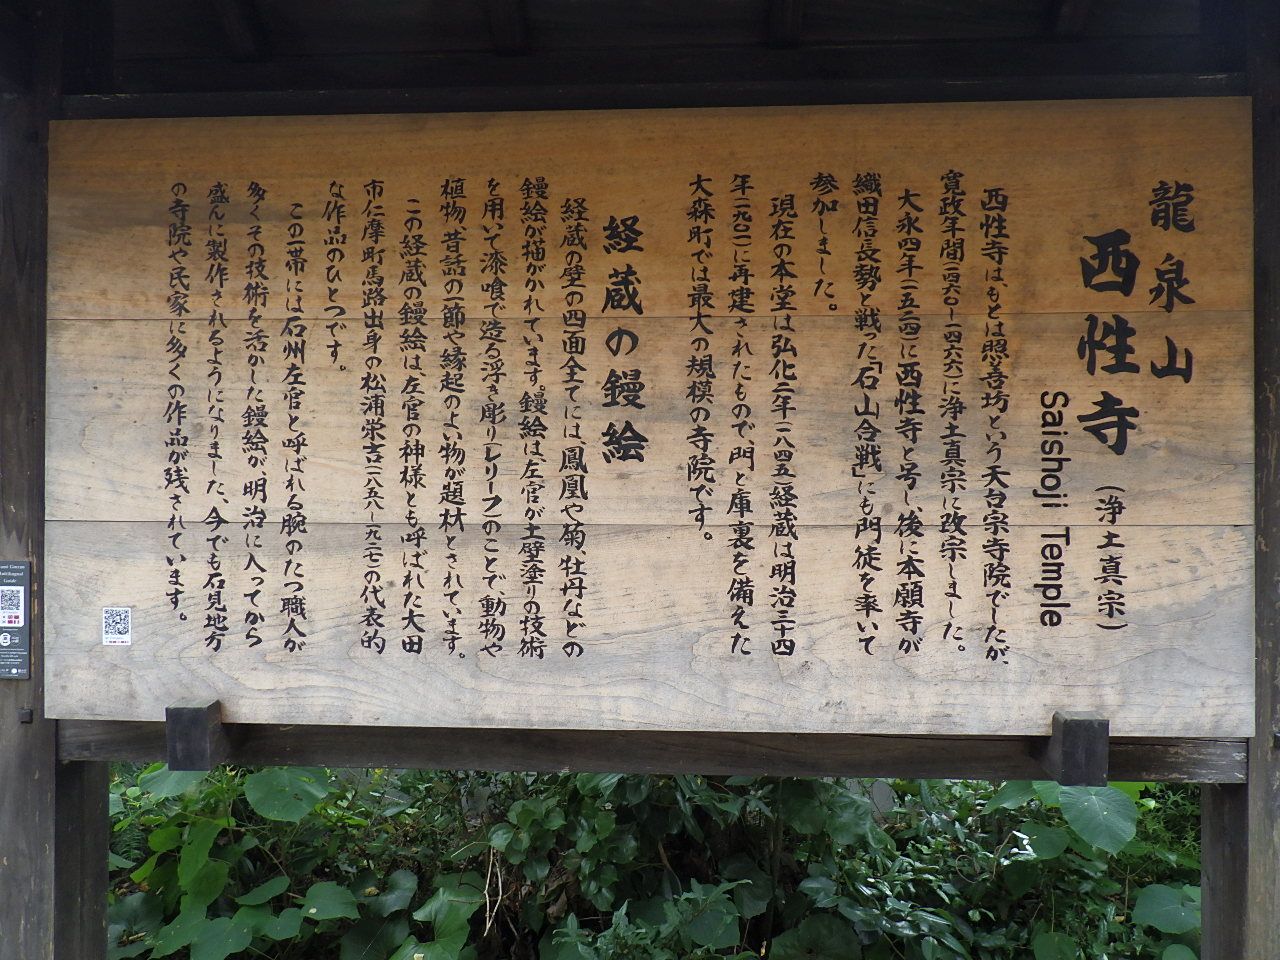 龍泉山
西性寺（浄土真宗）
Saishoji Temple
西性寺は、もとは照善坊という天台宗寺院でしたが、
寛政年間(一四六〇〜一四六六)に浄土真宗に改宗しました。
大永四年(一五二四)に西性寺と号し、後に本願寺が
織田信長勢と戦った「石山合戦」にも門徒を率いて
参加しました。
現在の本堂は弘化二年(一八四五)経蔵は明治三十四
年(一九〇一)に再建されたもので、門と庫裏を備えた
大森町では最大の規模の寺院です。
経蔵の鏝絵
経蔵の壁の四面全てには、鳳凰や菊、牡丹などの
鏝絵が描がかれています。鏝絵は、左官が土壁塗りの技術
を用いて漆喰で造る浮き彫り(レリーフ)のことで、動物や
植物、昔話の一節や縁起のよい物が題材とされています。
この経蔵の鏝絵は、左官の神様とも呼ばれた大田
市仁摩町馬路出身の松浦栄吉(一八五八〜一九二七)の代表的
な作品のひとつです。
この一帯には石州左官と呼ばれる腕のたつ職人が
多くその技術を活かした鏝絵が、明治に入ってから
盛んに製作されるようになりました、今でも石見地方
の寺院や民家に多くの作品が残されています。
Multilingual
Guide